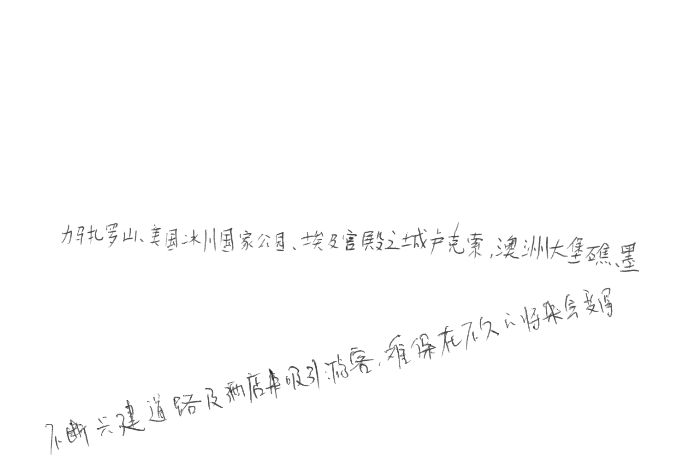 力马扎罗山、美国冰川国家公园、埃及宫殿之城卢克索,澳洲大堡礁、墨
不断兴建道路及酒店来吸引游客,难保在不久的将来会变得